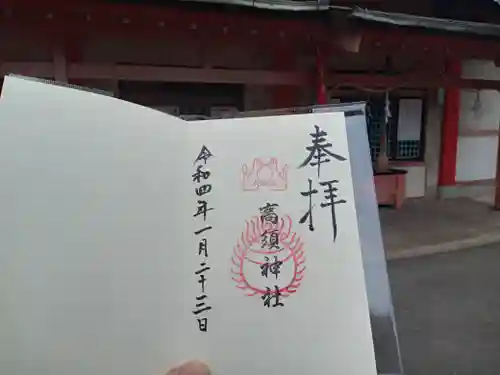 奉拝
高須神社
令和四年一月二十三日